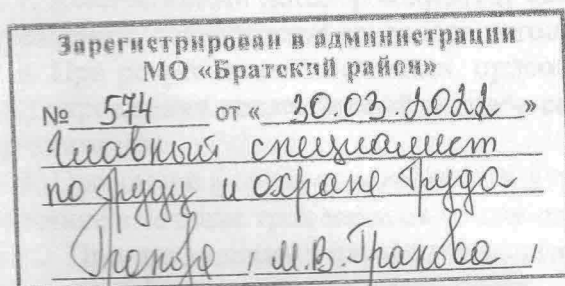 Зарегистрирован в администрации
МО «Братский район»
№ 574 от « 30.03.2022 »
Главный специалист
по труду и охране труда
М.В.